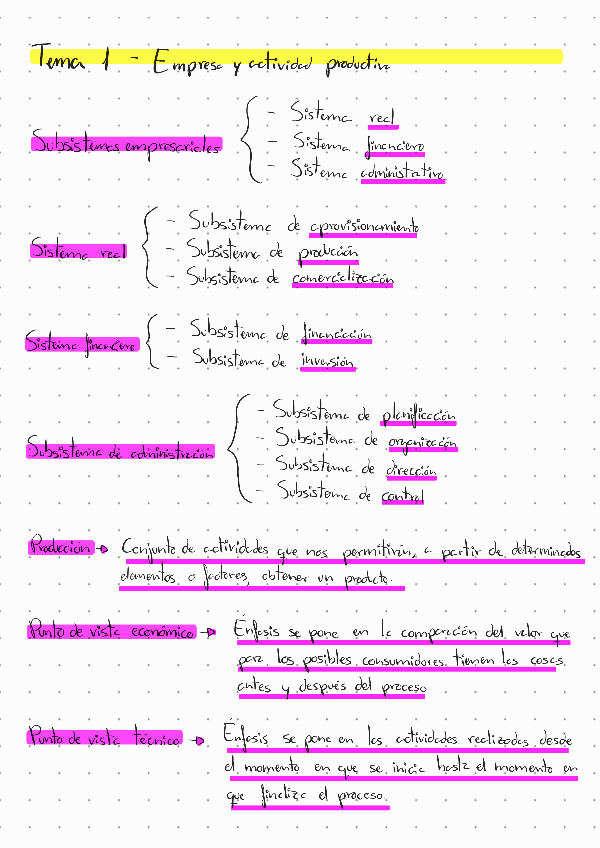 Tema 1 - Empresa y actividad productiva
Subsistemas empresariales
- Sistema real
- Sistema financiero
- Sistema administrativo
Sistema real
- Subsistema de aprovisionamiento
- Subsistema de producción
- Subsistema de comercialización
Sistema financiero
- Subsistema de financiación
- Subsistema de inversión
Subsistema de administración
- Subsistema de planificación
- Subsistema de organización
- Subsistema de dirección
- Subsistema de control
Producción → Conjunto de actividades que nos permitirán, a partir de determinados
elementos o factores, obtener un producto.
Punto de vista económico → Énfasis se pone en la comparación del valor que
para los posibles consumidores tienen las cosas
antes y después del proceso
Punto de vista técnico → Énfasis se pone en las actividades realizadas desde
el momento en que se inicia hasta el momento en
que finaliza el proceso.